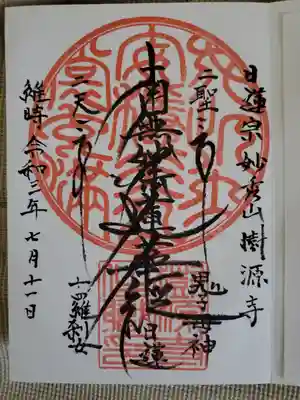 日蓮宗妙秀山樹源寺
二聖
鬼子母神
南無妙法蓮華経
日蓮
二天
十羅刹女
維時令和三年七月十一日